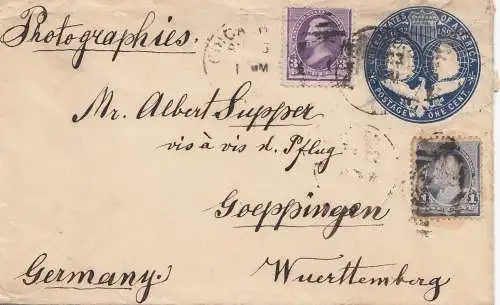 Photographies.
UNITED STATES OF AMERICA
POSTAGE ONE CENT
3 3
Mr. Albert Supper
vis à vis d. Pflug
1 1
Goeppingen
Germany.
Wuerttemberg